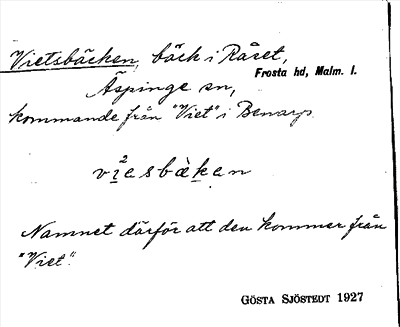 Vietsbäcken, bäck i Råset,
Frosta hd, Malm. l.
Äspinge sn,
kommande från "Viet" i Benarp.
vi²esbäken
Namnet därför att den kommer från
"Viet".
GÖSTA SJÖSTEDT 1927